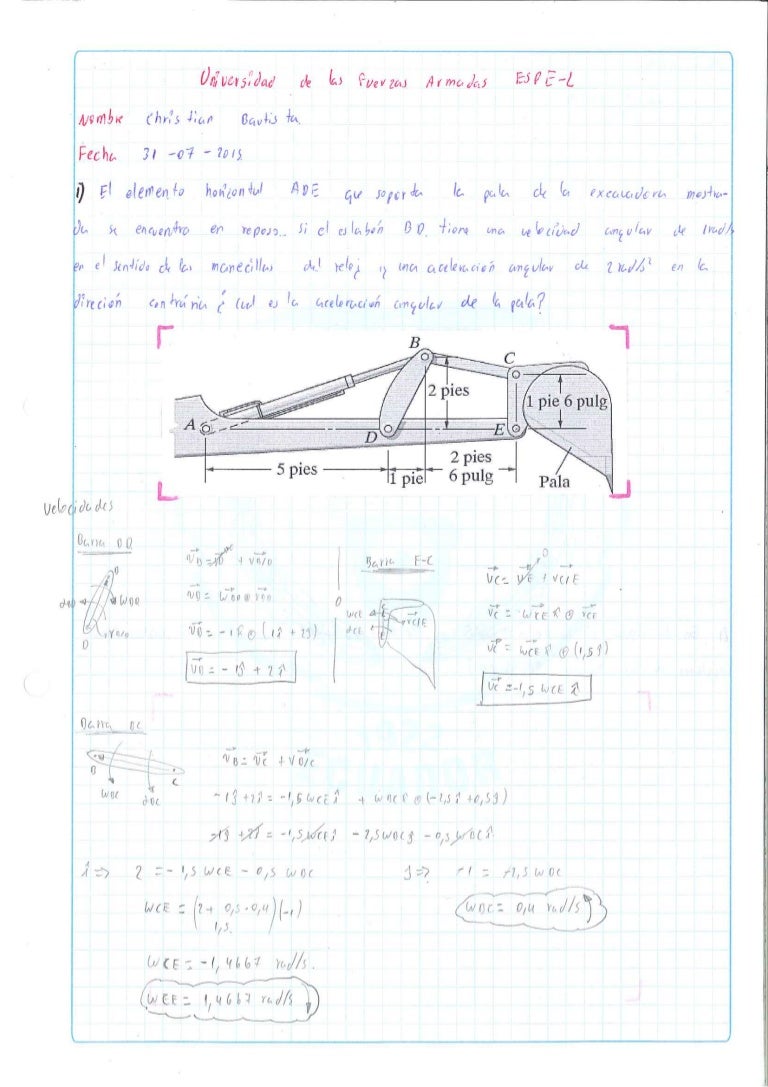 Universidad de las Fuerzas Armadas ESPE-L
Nombre Christian Bautista.
Fecha 31-07-2015
1) El elemento horizontal ADE que soporta la pala de la excavadora mostra-
da se encuentra en reposo.. si el eslabón BD. tiene una velocidad angular de 1rad/s
en el sentido de las manecillas del reloj y una aceleración angular de 2 rad/s² en la
direcion contraria ¿ cual es la aceleración angular de la pala?
B
C
2 pies
1 pie 6 pulg
A
D
E
5 pies
1 pie
2 pies
6 pulg
Pala
Velocidades
Barra
Barra E-C
0
+ 2î
Vc = VE + VC/E
(1,5 ĵ)
Vc = -1,5 WCE î
Barra BC
B
C
WBC
αBC
VB = VC + VB/C
-1ĵ +2î = -1,5 WCE î + WBC k̂ ⊗ (-2,5î +0,5ĵ)
-1ĵ +2î = -1,5WCE î - 2,5WBC ĵ - 0,5 WBC î
î => 2 = -1,5 WCE - 0,5 WBC
ĵ => -1 = -2,5 WBC
WCE = (2 + 0,5 · 0,4)(-1)
1,5
WBC = 0,4 rad/s
WCE = -1,4667 rad/s.
WCE = 1,4667 rad/s